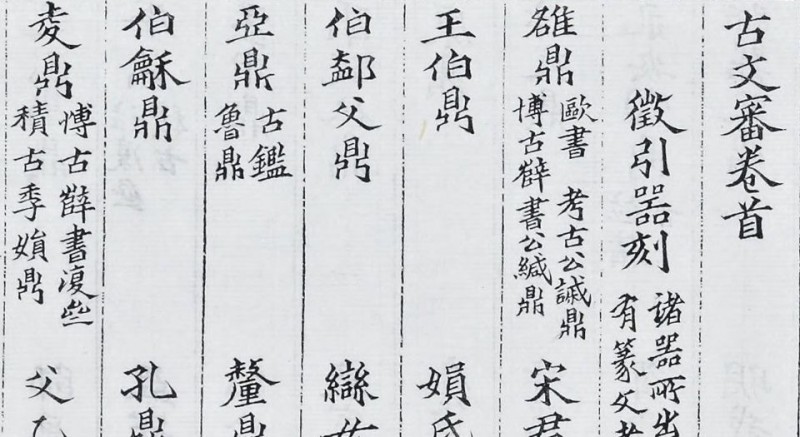 古文審卷首
徵引器刻
諸器所出
有篆文者
雒鼎
歐書 考古公諴鼎
博古薛書公緘鼎
宋君
王伯鼎
娟氏
伯郝父鼎
䜌女
亞鼎
古鑑
魯鼎
釐鼎
伯龢鼎
孔鼎
夌鼎
博古薛書㝛
積古季娟鼎
父乙